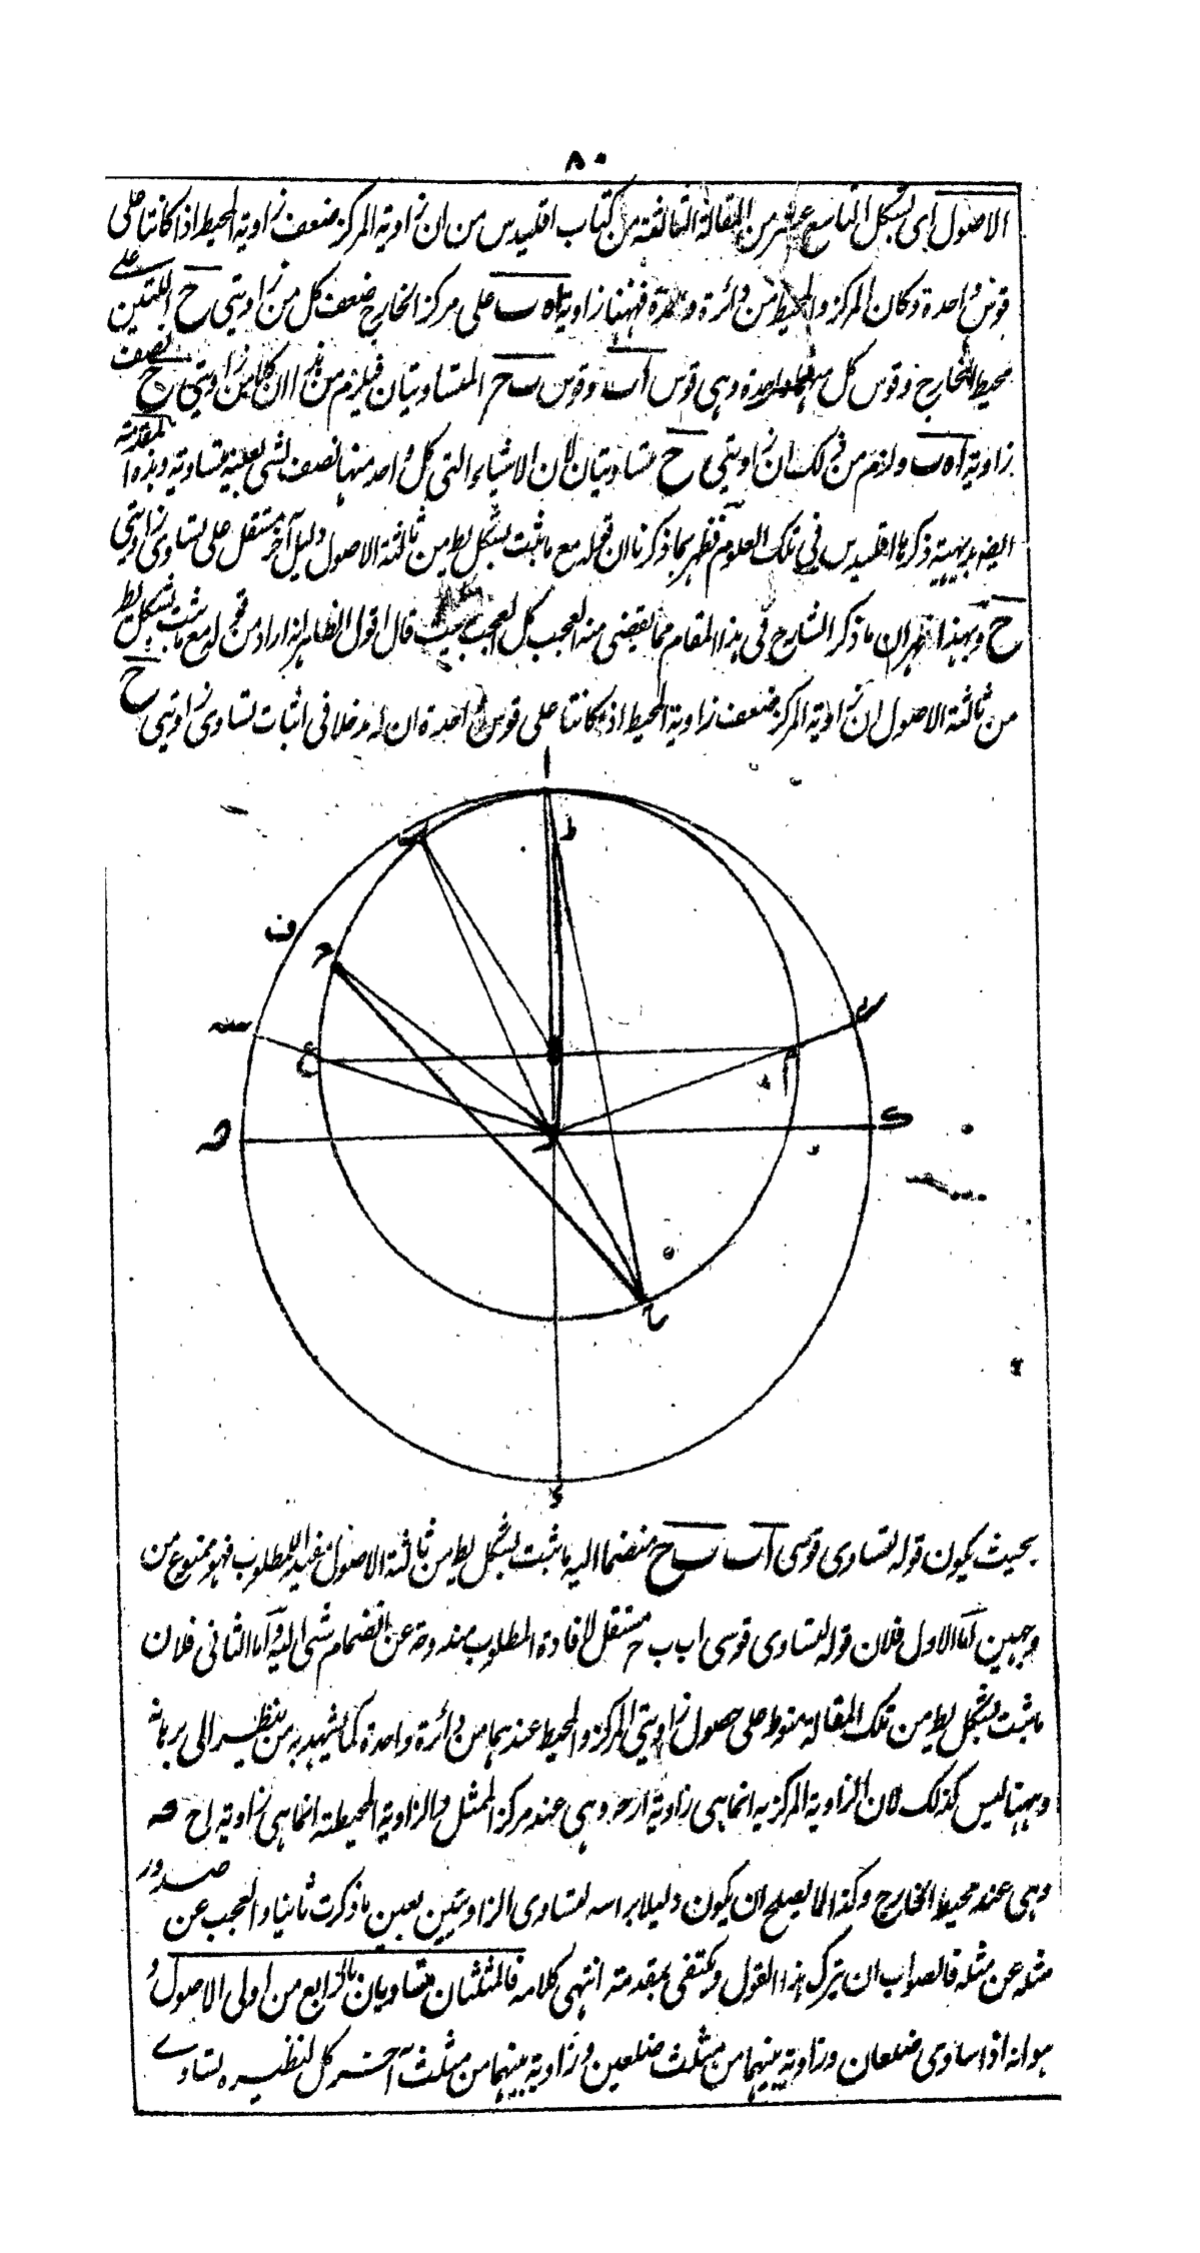 ٨٠
الاصول اى بشكل التاسع عشر من المقالة الثالثة من كتاب اقليدس من ان زاوية المركز ضعف زاوية المحيط اذا كانتا على
قوس واحدة وكان المركز والمحيط من دائرة واحدة فههنا زاوية اه ب على مركز الخارج ضعف كل من زاويتى ح اللتين على
محيط الخارج وقوس كل منهما واحدة وهى قوس اب وقوس ب ح المتساويتان فيلزم من هذا ان كلا من زاويتى ح نصف
زاوية اه ب ولزم من ذلك ان زاويتى ح متساويتان لان الاشياء التى كل واحد منها نصف لشى بعينه متساوية وهذه المقدمة
ايضا بديهية ذكرها اقليدس فى تلك العلوم فظهر بما ذكرنا ان قوله مع ما ثبت بشكل يط من ثالثة الاصول دليل آخر مستقل على تساوى زاويتى
ح وبهذا ظهر ان ما ذكر الشارح فى هذا المقام مما يقضى منه العجب كل العجب حيث قال اقول الظاهر انه اراد من قوله مع ما ثبت بشكل يط
من ثالثة الاصول ان زاوية المركز ضعف زاوية المحيط اذا كانتا على قوس واحدة ان له مدخلا فى اثبات تساوى زاويتى ح
ا
ب
ط
ف
ح
س
ع
م
ه
د
ى
ح
ء
بحيث يكون قوله لتساوى قوسى اب ب ح منضما اليه ما ثبت بشكل يط من ثالثة الاصول مفيد للمطلوب فهو ممنوع من
وجهين اما الاول فلان قوله لتساوى قوسى اب ب ح مستقل لافادة المطلوب مندوحة عن انضمام شى اليه واما الثانى فلان
ما ثبت بشكل يط من تلك المقالة منوط على حصول زاويتى المركز والمحيط عندهما من دائرة واحدة كما يشهد به من ينظر الى برهانه
وههنا ليس كذلك لان الزاوية المركزية انما هى زاوية وهى عند مركز الممثل والزاوية المحيطة انما هى زاوية
وهى عند محيط الخارج وكذا لما يصلح ان يكون دليلا براسه لتساوى الزاويتين بعين ما ذكرت ثانيا والعجب عن صدور
مثله عن مثله فالصواب ان يترك هذا القول ويكتفى بمقدمته انتهى كلامه فالمثلثان متساويان بالرابع من اولى الاصول و
هو انه اذا ساوى ضلعان وزاوية بينهما من مثلث ضلعين وزاوية بينهما من مثلث آخر كل لنظيره تساوے